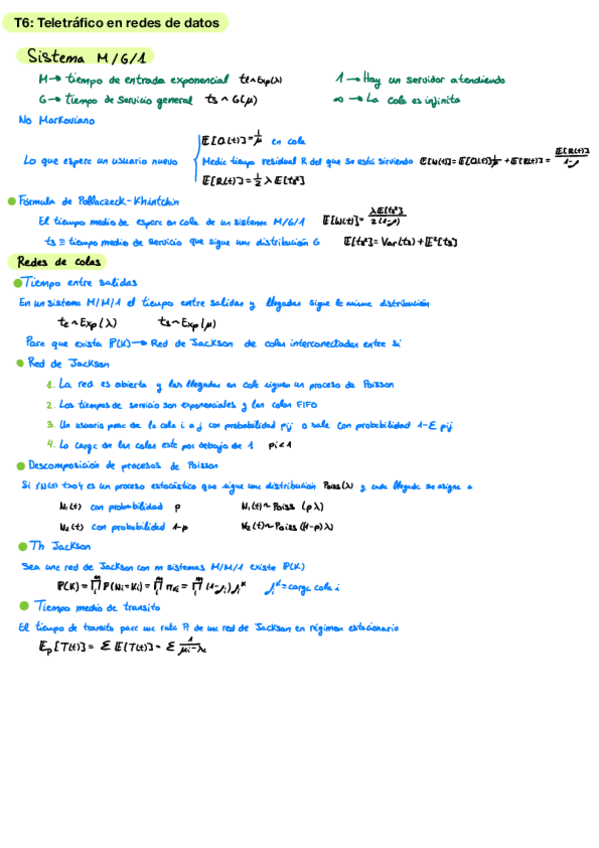 T6: Teletráfico en redes de datos
Sistema M/G/1
M → tiempo de entrada exponencial te ~ Exp(λ)
1 → Hay un servidor atendiendo
G → tiempo de servicio general ts ~ G(μ)
∞ → La cola es infinita
No Markoviano
E[Q(t)] = 1/μ en cola
Lo que espera un usuario nuevo
Media tiempo residual R del que se está sirviendo E[W(t)] = E[Q(t)] 1/μ + E[R(t)] = E[R(t)]/1-ρ
E[R(t)] = 1/2 λ E[ts²]
Fórmula de Pollaczeck-Khintchin
El tiempo medio de espera en cola de un sistema M/G/1 E[W(t)] = λE[ts²]/2(1-ρ)
ts ≡ tiempo medio de servicio que sigue una distribución G E[ts²] = Var(ts) + E²[ts]
Redes de colas
Tiempo entre salidas
En un sistema M/M/1 el tiempo entre salidas y llegadas sigue la misma distribución
te ~ Exp(λ) ts ~ Exp(μ)
Para que exista P(K) → Red de Jackson de colas interconectadas entre si
Red de Jackson
1. La red es abierta y las llegadas en cola siguen un proceso de Poisson
2. Los tiempos de servicio son exponenciales y las colas FIFO
3. Un usuario pasa de la cola i a j con probabilidad pij o sale con probabilidad 1-Σ pij
4. La carga de las colas este por debajo de 1 ρi < 1
Descomposición de procesos de Poisson
Si {N(t) t>0} es un proceso estocástico que sigue una distribución Poiss(λ) y cada llegada se asigna a
N₁(t) con probabilidad p N₁(t) ~ Poiss(pλ)
N₂(t) con probabilidad 1-p N₂(t) ~ Poiss((1-p)λ)
Th Jackson
Sea una red de Jackson con m sistemas M/M/1 existe P(K)
P(K) = ∏ P(Ni=Ki) = ∏ πKi = ∏ (1-ρi)ρi^K ρi^K = carga cola i
Tiempo medio de transito
El tiempo de transito para una ruta P de una red de Jackson en régimen estacionario
Ep[T(t)] = Σ E(T(t)) = Σ 1/μi-λi